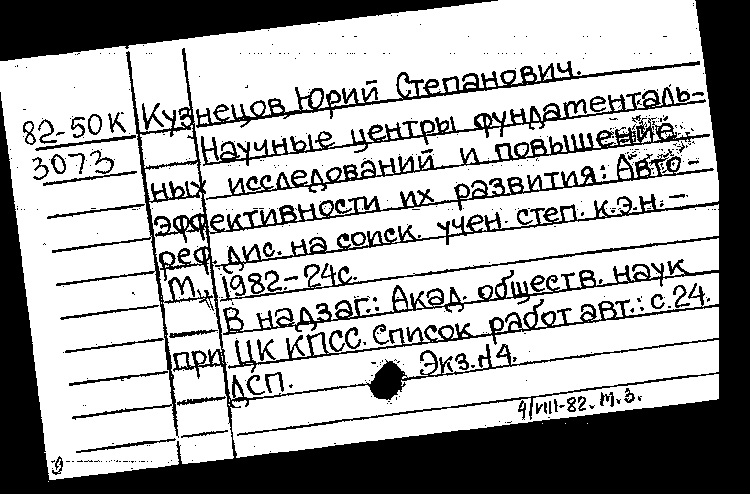 82-50К Кузнецов, Юрий Степанович.
3073 Научные центры фундаменталь-
ных исследований и повышение
эффективности их развития: Авто-
реф. дис. на соиск. учен. степ. к.э.н. –
М., 1982.–24с.
В надзаг.: Акад. обществ. наук
при ЦК КПСС. Список работ авт.: с.24.
ДСП. Экз.№4.
4/VIII-82. М.З.